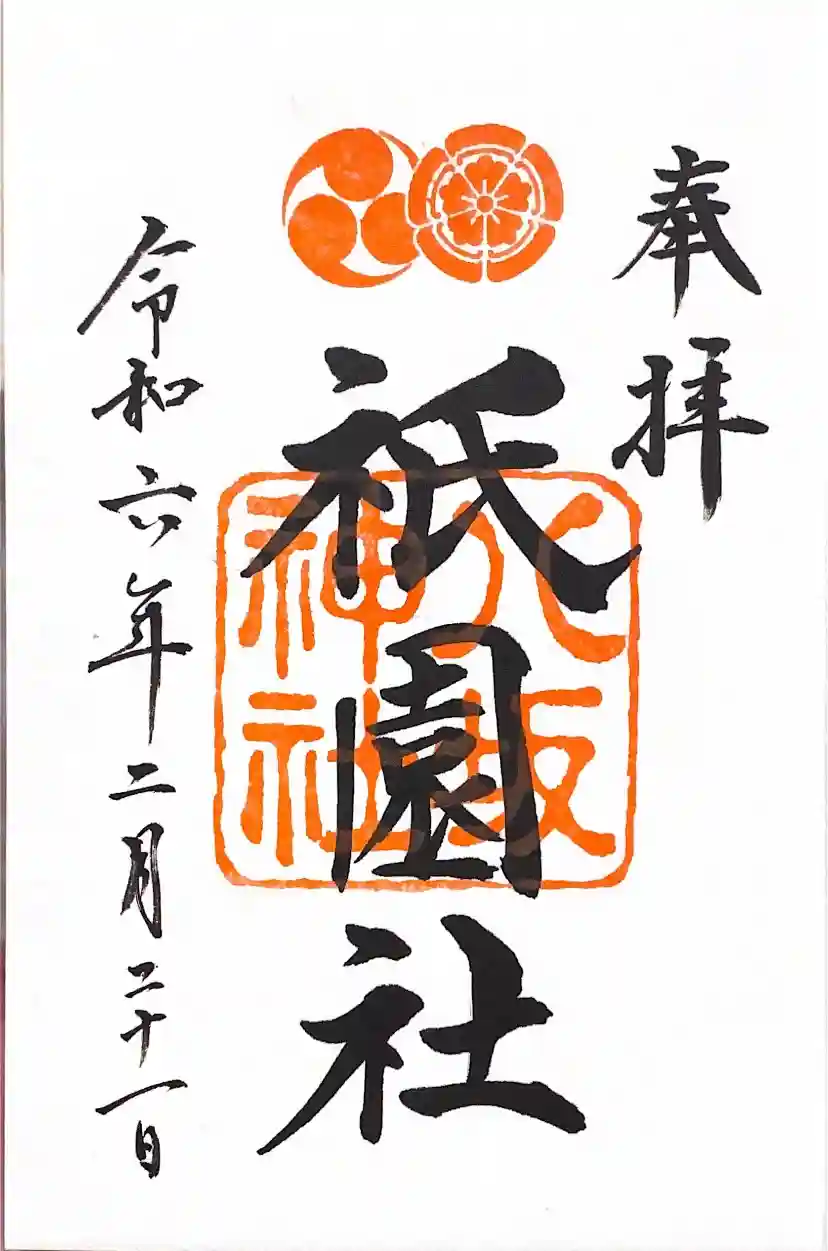 奉拝
祇園社
八坂
神社
令和六年二月二十一日